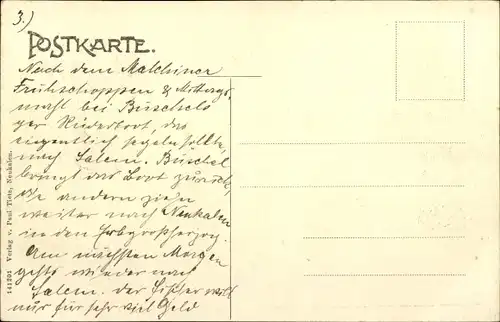 3.)
POSTKARTE.
Nach dem Malchiner
Frühschoppen & Mittags-
mahl bei Büschels
per Ruderboot, das
eigentlich segeln sollte,
nach Salem. Büschel
bringt das Boot zurück,
die andern ziehen
weiter nach Neukalen
in den Erbgroßherzog.
Am nächsten Morgen
gehts wieder nach
Salem. Der Fischer will
nur für sehr viel Geld
141201 Verlag v. Paul Tietz, Neukalen.